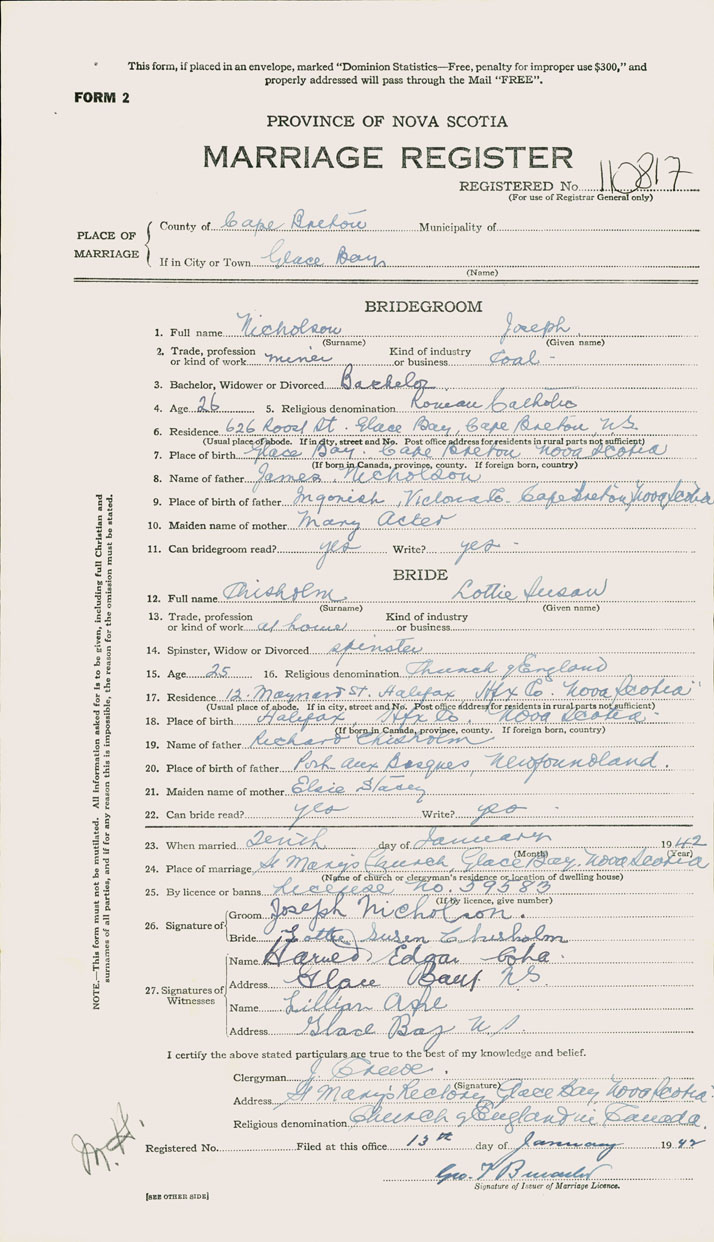 This form, if placed in an envelope, marked "Dominion Statistics—Free, penalty for improper use $300," and
properly addressed will pass through the Mail "FREE".
FORM 2
PROVINCE OF NOVA SCOTIA
MARRIAGE REGISTER
REGISTERED No. 110817
(For use of Registrar General only)
PLACE OF MARRIAGE
County of Cape Breton Municipality of
If in City or Town Glace Bay
(Name)
BRIDEGROOM
1. Full name Nicholson Joseph
(Surname) (Given name)
2. Trade, profession or kind of work miner Kind of industry or business Coal -
3. Bachelor, Widower or Divorced Bachelor
4. Age 26 5. Religious denomination Roman Catholic
6. Residence 626 Roost St. Glace Bay, Cape Breton N.S.
(Usual place of abode. If in city, street and No. Post office address for residents in rural parts not sufficient)
7. Place of birth Glace Bay. Cape Breton Nova Scotia
(If born in Canada, province, county. If foreign born, country)
8. Name of father James Nicholson
9. Place of birth of father Ingonish, Victoria Co. Cape Breton, Nova Scotia
10. Maiden name of mother Mary
11. Can bridegroom read? yes Write? yes -
BRIDE
12. Full name Chisholm Lottie Susan
(Surname) (Given name)
13. Trade, profession or kind of work at home Kind of industry or business
14. Spinster, Widow or Divorced spinster
15. Age 25 16. Religious denomination Church of England
17. Residence 12 Maynard St. Halifax Hfx Co. Nova Scotia
(Usual place of abode. If in city, street and No. Post office address for residents in rural parts not sufficient)
18. Place of birth Halifax, Hfx Co. Nova Scotia -
(If born in Canada, province, county. If foreign born, country)
19. Name of father Richard Chisholm
20. Place of birth of father Port aux Basques, Newfoundland.
21. Maiden name of mother Elsie Stacey
22. Can bride read? yes Write? yes -
23. When married Tenth day of January 1942
(Month) (Year)
24. Place of marriage St Mary's Church, Glace Bay. Nova Scotia
(Name of church or clergyman's residence or location of dwelling house)
25. By licence or banns License No. 59583
(If by licence, give number)
26. Signature of
Groom Joseph Nicholson.
Bride Lottie Susen Chisholm
27. Signatures of Witnesses
Name Edgar
Address Glace Bay N.S.
Name Lillian
Address Glace Bay N.S.
I certify the above stated particulars are true to the best of my knowledge and belief.
Clergyman J.
(Signature)
Address St Mary's Rectory Glace Bay Nova Scotia
Religious denomination Church of England in Canada.
Registered No. Filed at this office 13th day of January 1942
Geo. T
Signature of Issuer of Marriage Licence.
[SEE OTHER SIDE]
NOTE.—This form must not be mutilated. All information asked for is to be given, including full Christian and
surnames of all parties, and if for any reason this is impossible, the reason for the omission must be stated.
M.H.